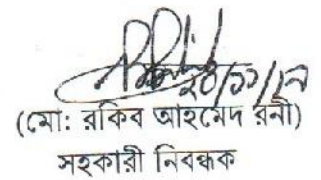 ২০/১১/১৭
(মো: রকিব আহমেদ রনী)
সহকারী নিবন্ধক